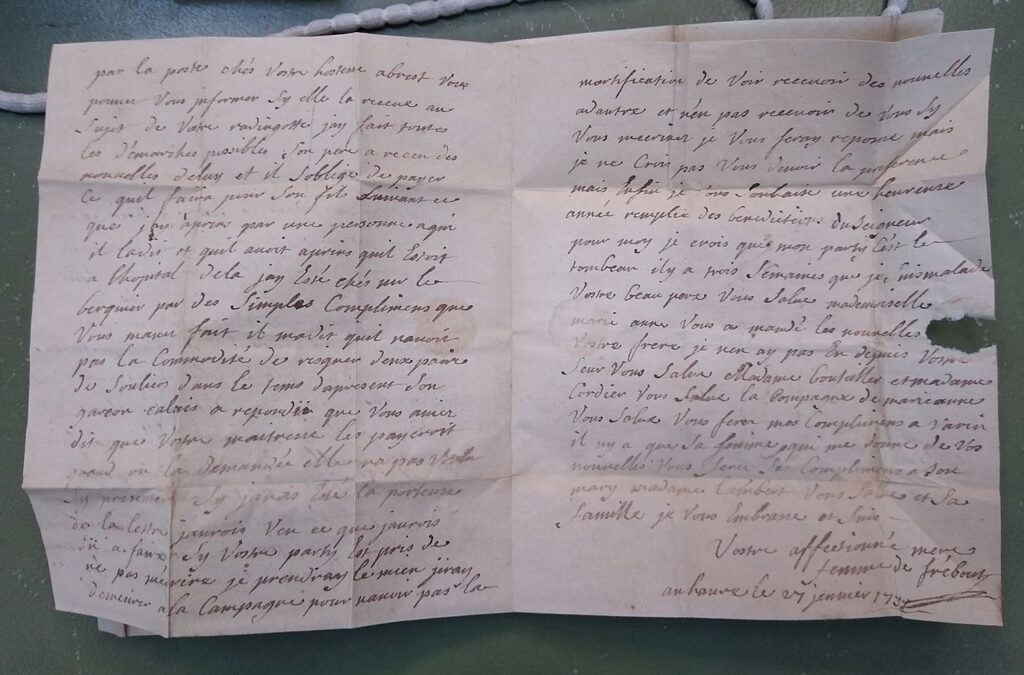 par la poste chés Vostre hostesse abrest Vous
pouvez Vous informer Sy elle la receue au
Sujet de Votre redingotte jay fait toutes
les démarches possibles Son pere a receu des
nouvelles deluy et il Soblige de payer
ce quil faira pour Son fils Suivant ce
que jay apris par une personne aqui
il ladit et quil avoit apris quil Estoit
a lhopital dela jay Esté chés mr le
berquier par des Simples Complimens que
Vous mavez fait il madit quil navoit
pas la Commodité de risquer deux paire
de Souliers dans le tems dapresent Son
garcon calais a repondu que Vous aviez
dit que Vostre maitresse les payeroit
quand on la demandée elle na pas Voulu
Sy javois Esté la porteuse
de la lettre jaurois Veu ce que jaurois
Sy Vostre party Est pris de
ne pas mécrire je prendray le mien jiray
demeurer a la Campagne pour navoir pas la
mortification de Voir recevoir des nouvelles
adautre et nen pas recevoir de Vous Sy
Vous mecrivez je Vous feray reponse mais
je ne Crois pas Vous devoir la preference
mais Enfin je Vous Souhaise une heureuse
année remplie des benedictions du Seigneur
pour moy je crois que mon party Cest le
tombeau il y a trois Semaines que je Suis malade
Vostre beau pere Vous Salue mademoiselle
marie anne Vous a mandé les nouvelles
Vostre frere je nen ay pas Eu depuis Vostre
Seur Vous Salue Madame bouteiller et madame
Cordier Vous Salue la Compagne de marieanne
Vous Salue Vous ferez mes Complimens a Varin
il ny a que Sa femme qui me donne de Vos
nouvelles Vous ferez Ses Complimens a Son
mary madame Lambert Vous Salue et Sa
famille je Vous Embrasse et Suis
Vostre affectionnée mere
femme de frebout
au havre le 27 jenvier